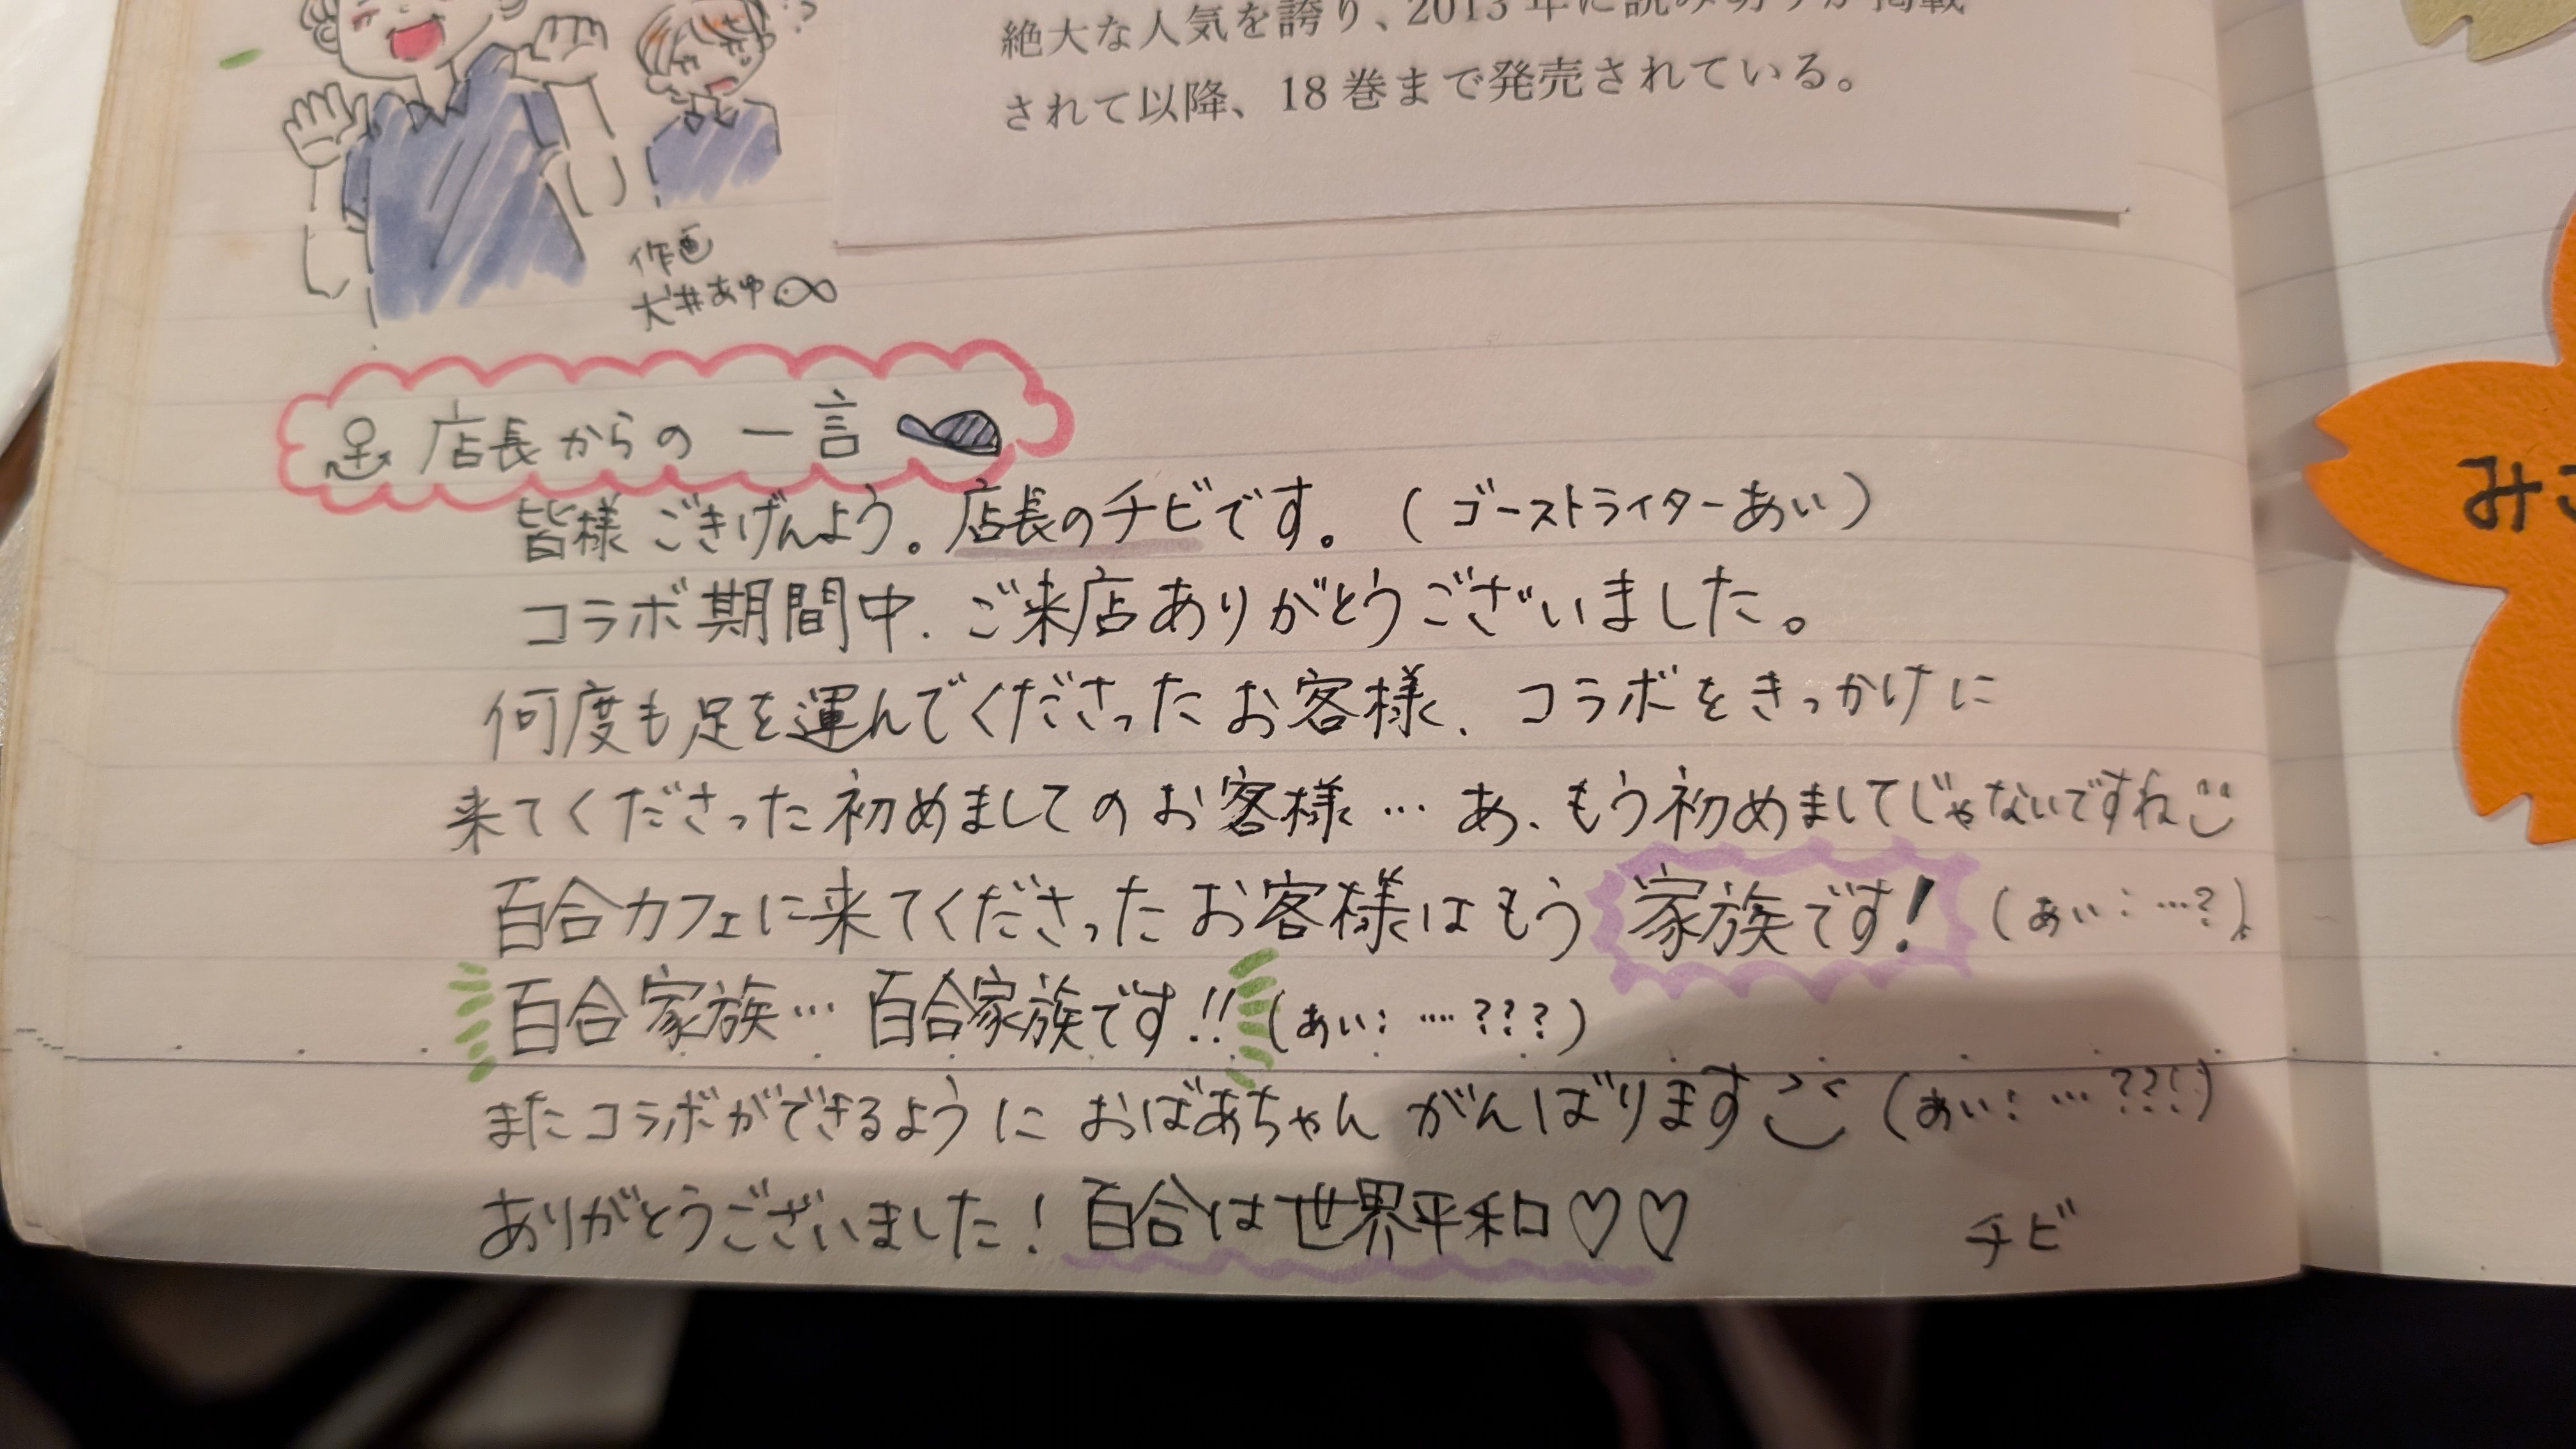 絶大な人気を誇り、2013年に読み切りが掲載
されて以降、18巻まで発売されている。
作画
犬井あゆ
店長からの一言
皆様 ごきげんよう。店長のチビです。(ゴーストライターあい)
コラボ期間中、ご来店ありがとうございました。
何度も足を運んでくださったお客様、コラボをきっかけに
来てくださった初めましてのお客様…あ、もう初めましてじゃないですね
百合カフェに来てくださったお客様はもう家族です!(あい:…?)
百合家族…百合家族です!!(あい:…???)
またコラボができるように おばあちゃん がんばります(あい:…??!!)
ありがとうございました!百合は世界平和♡♡
チビ